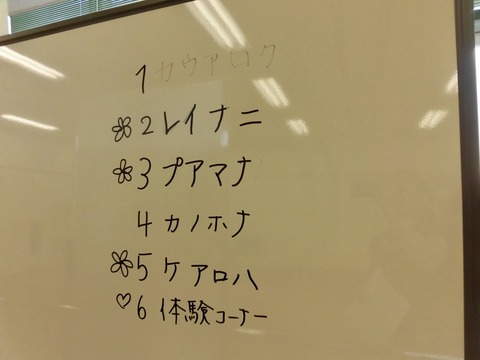 1 カウアロク
❀2 レイナニ
❀3 プアマナ
4 カノホナ
❀5 ケアロハ
♡6 体験コーナー